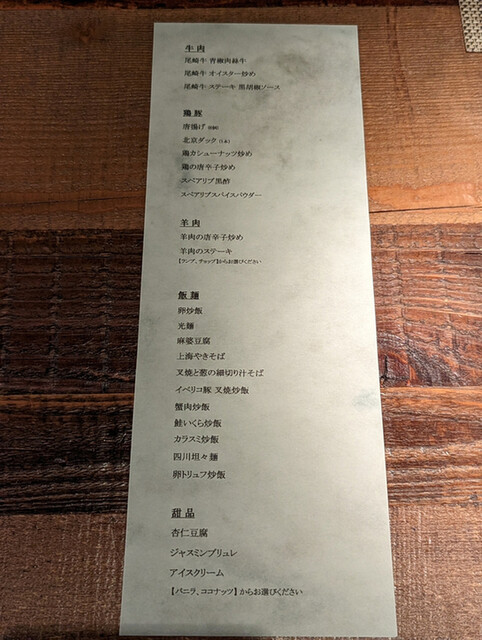 牛肉
尾崎牛 青椒肉絲牛
尾崎牛 オイスター炒め
尾崎牛 ステーキ 黒胡椒ソース
鶏豚
唐揚げ
北京ダック
鶏カシューナッツ炒め
鶏の唐辛子炒め
スペアリブ黒酢
スペアリブスパイスパウダー
羊肉
羊肉の唐辛子炒め
羊肉のステーキ
【ランプ、チョップ】からお選びください
飯麺
卵炒飯
光麺
麻婆豆腐
上海やきそば
叉焼と葱の細切り汁そば
イベリコ豚 叉焼炒飯
蟹肉炒飯
鮭いくら炒飯
カラスミ炒飯
四川坦々麺
卵トリュフ炒飯
甜品
杏仁豆腐
ジャスミンブリュレ
アイスクリーム
【バニラ、ココナッツ】からお選びください